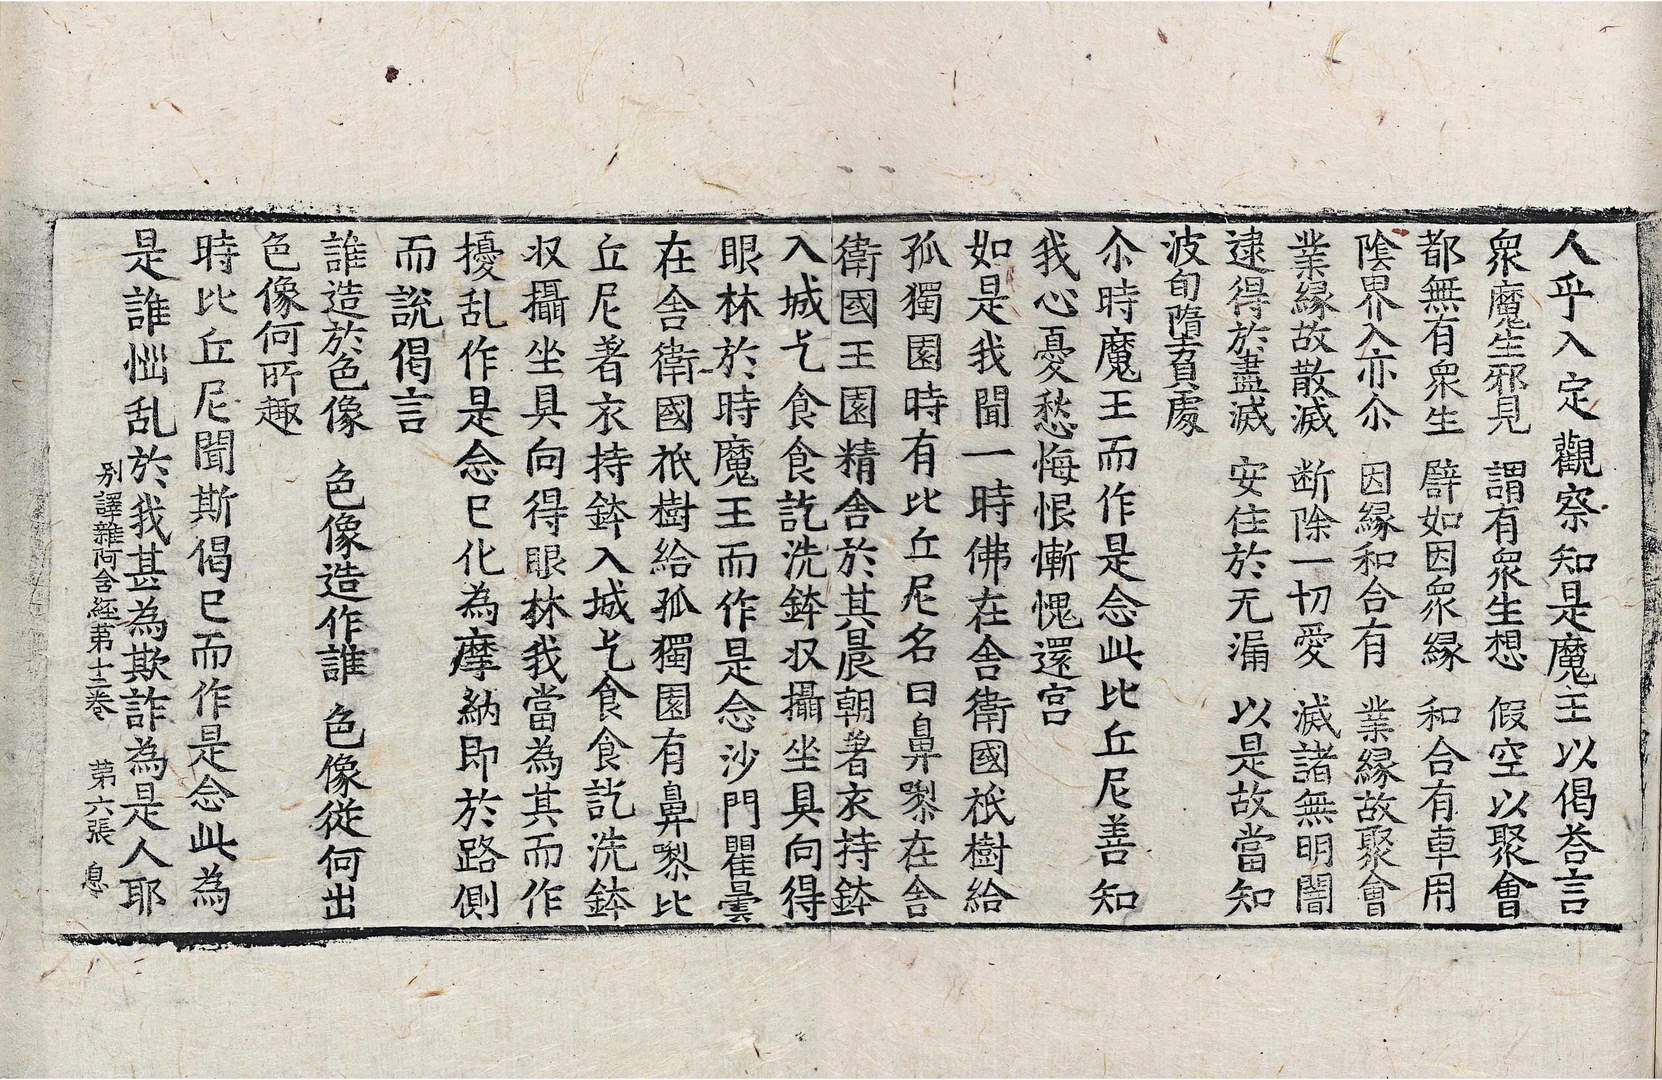 人乎入定觀察知是魔王以偈荅言
衆魔生邪見　謂有衆生想　假空以聚會
都無有衆生　辟如因衆緣　和合有車用
陰界入亦尒　因緣和合有　業緣故聚會
業緣故散滅　断除一切愛　滅諸無明闇
逮得於盡滅　安住於无漏　以是故當知
波旬墮負處
尒時魔王而作是念此比丘尼善知
我心憂愁悔恨慚愧還宮
如是我聞一時佛在舎衛國祇樹給
孤獨園時有比丘尼名曰鼻㗚在舎
衛國王園精舎於其晨朝著衣持鉢
入城乞食食訖洗鉢収攝坐具向得
眼林於時魔王而作是念沙門瞿曇
在舎衛國祇樹給孤獨園有鼻㗚比
丘尼著衣持鉢入城乞食食訖洗鉢
収攝坐具向得眼林我當為其而作
擾乱作是念已化為摩納即於路側
而說偈言
誰造於色像　色像造作誰　色像從何出
色像何所趣
時比丘尼聞斯偈已而作是念此為
是誰㤕乱於我甚為欺詐為是人耶
別譯雜阿含経第十二卷　第六張　息